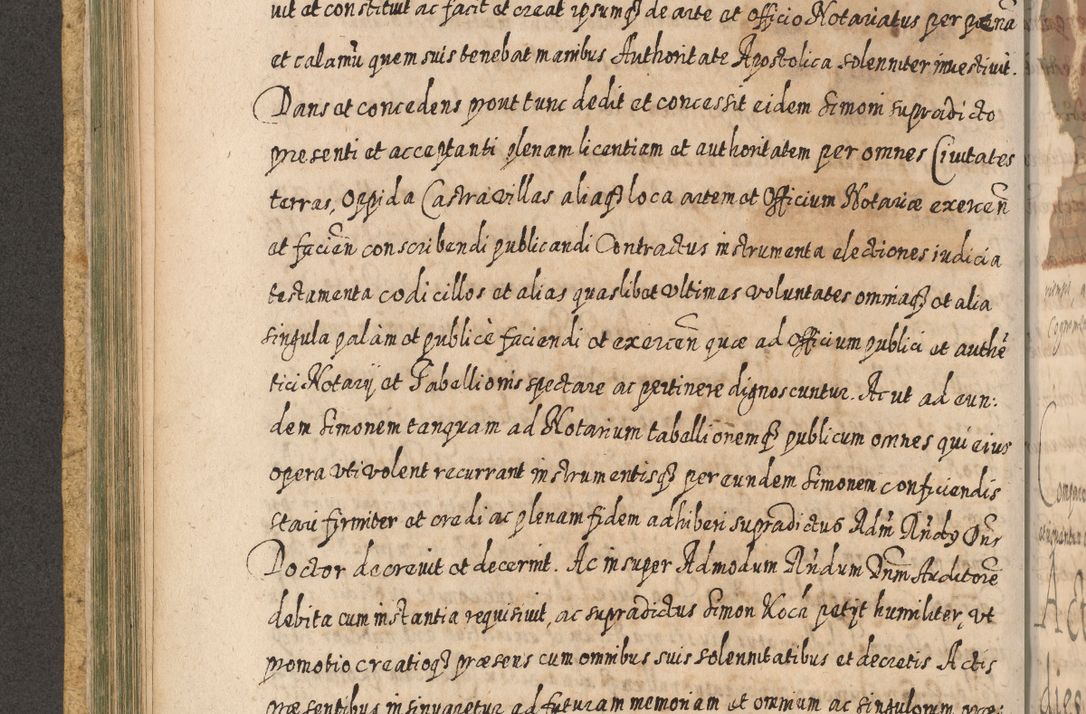 uit et constituit ac facit et creat ipsumq3 de arte et officio Notariatus per pennã
et calamũ quem suis tenebat manibus Authoritate Apostolica solenniter inuestiuit.
Dans et concedens prout tunc dedit et concessit eidem Simoni supradicto
præsenti et acceptanti plenam licentiam et authoritatem per omnes Ciuitates
terras, Oppida Castra villas aliaq3 loca artem et Officium Notariæ exercẽn
et faciẽn conscribendi publicandi Contractus instrumenta electiones iudicia
testamenta codicillos et alias quaslibet vltimas voluntates omniaq3 et alia
singula palàm et publicè faciendi et exercẽn quæ ad Officium publici et authẽ
tici Notarij et Tabellionis spectare ac pertinere dignoscuntur. Ac ut ad eun:
dem Simonem tanquam ad Notarium tabellionemq3 publicum omnes qui eius
opera vti volent recurrant instrumentisq3 per eundem Simonem conficiendis
stari firmiter et credi ac plenam fidem adhiberi supradictus Adm̃ Rñdg Dñs
Doctor decreuit et decernit. Ac insuper Admodum Rñdum Dñm Auditorẽ
debita cum instantia requisiuit, ac supradictus Simon Koch petijt humiliter, vt
promotio creatioq3 præsens cum omnibus suis solennitatibus et decretis Actis
præsentibus insinuaretur ad futuram memoriam et omnium ac singulorum præ: